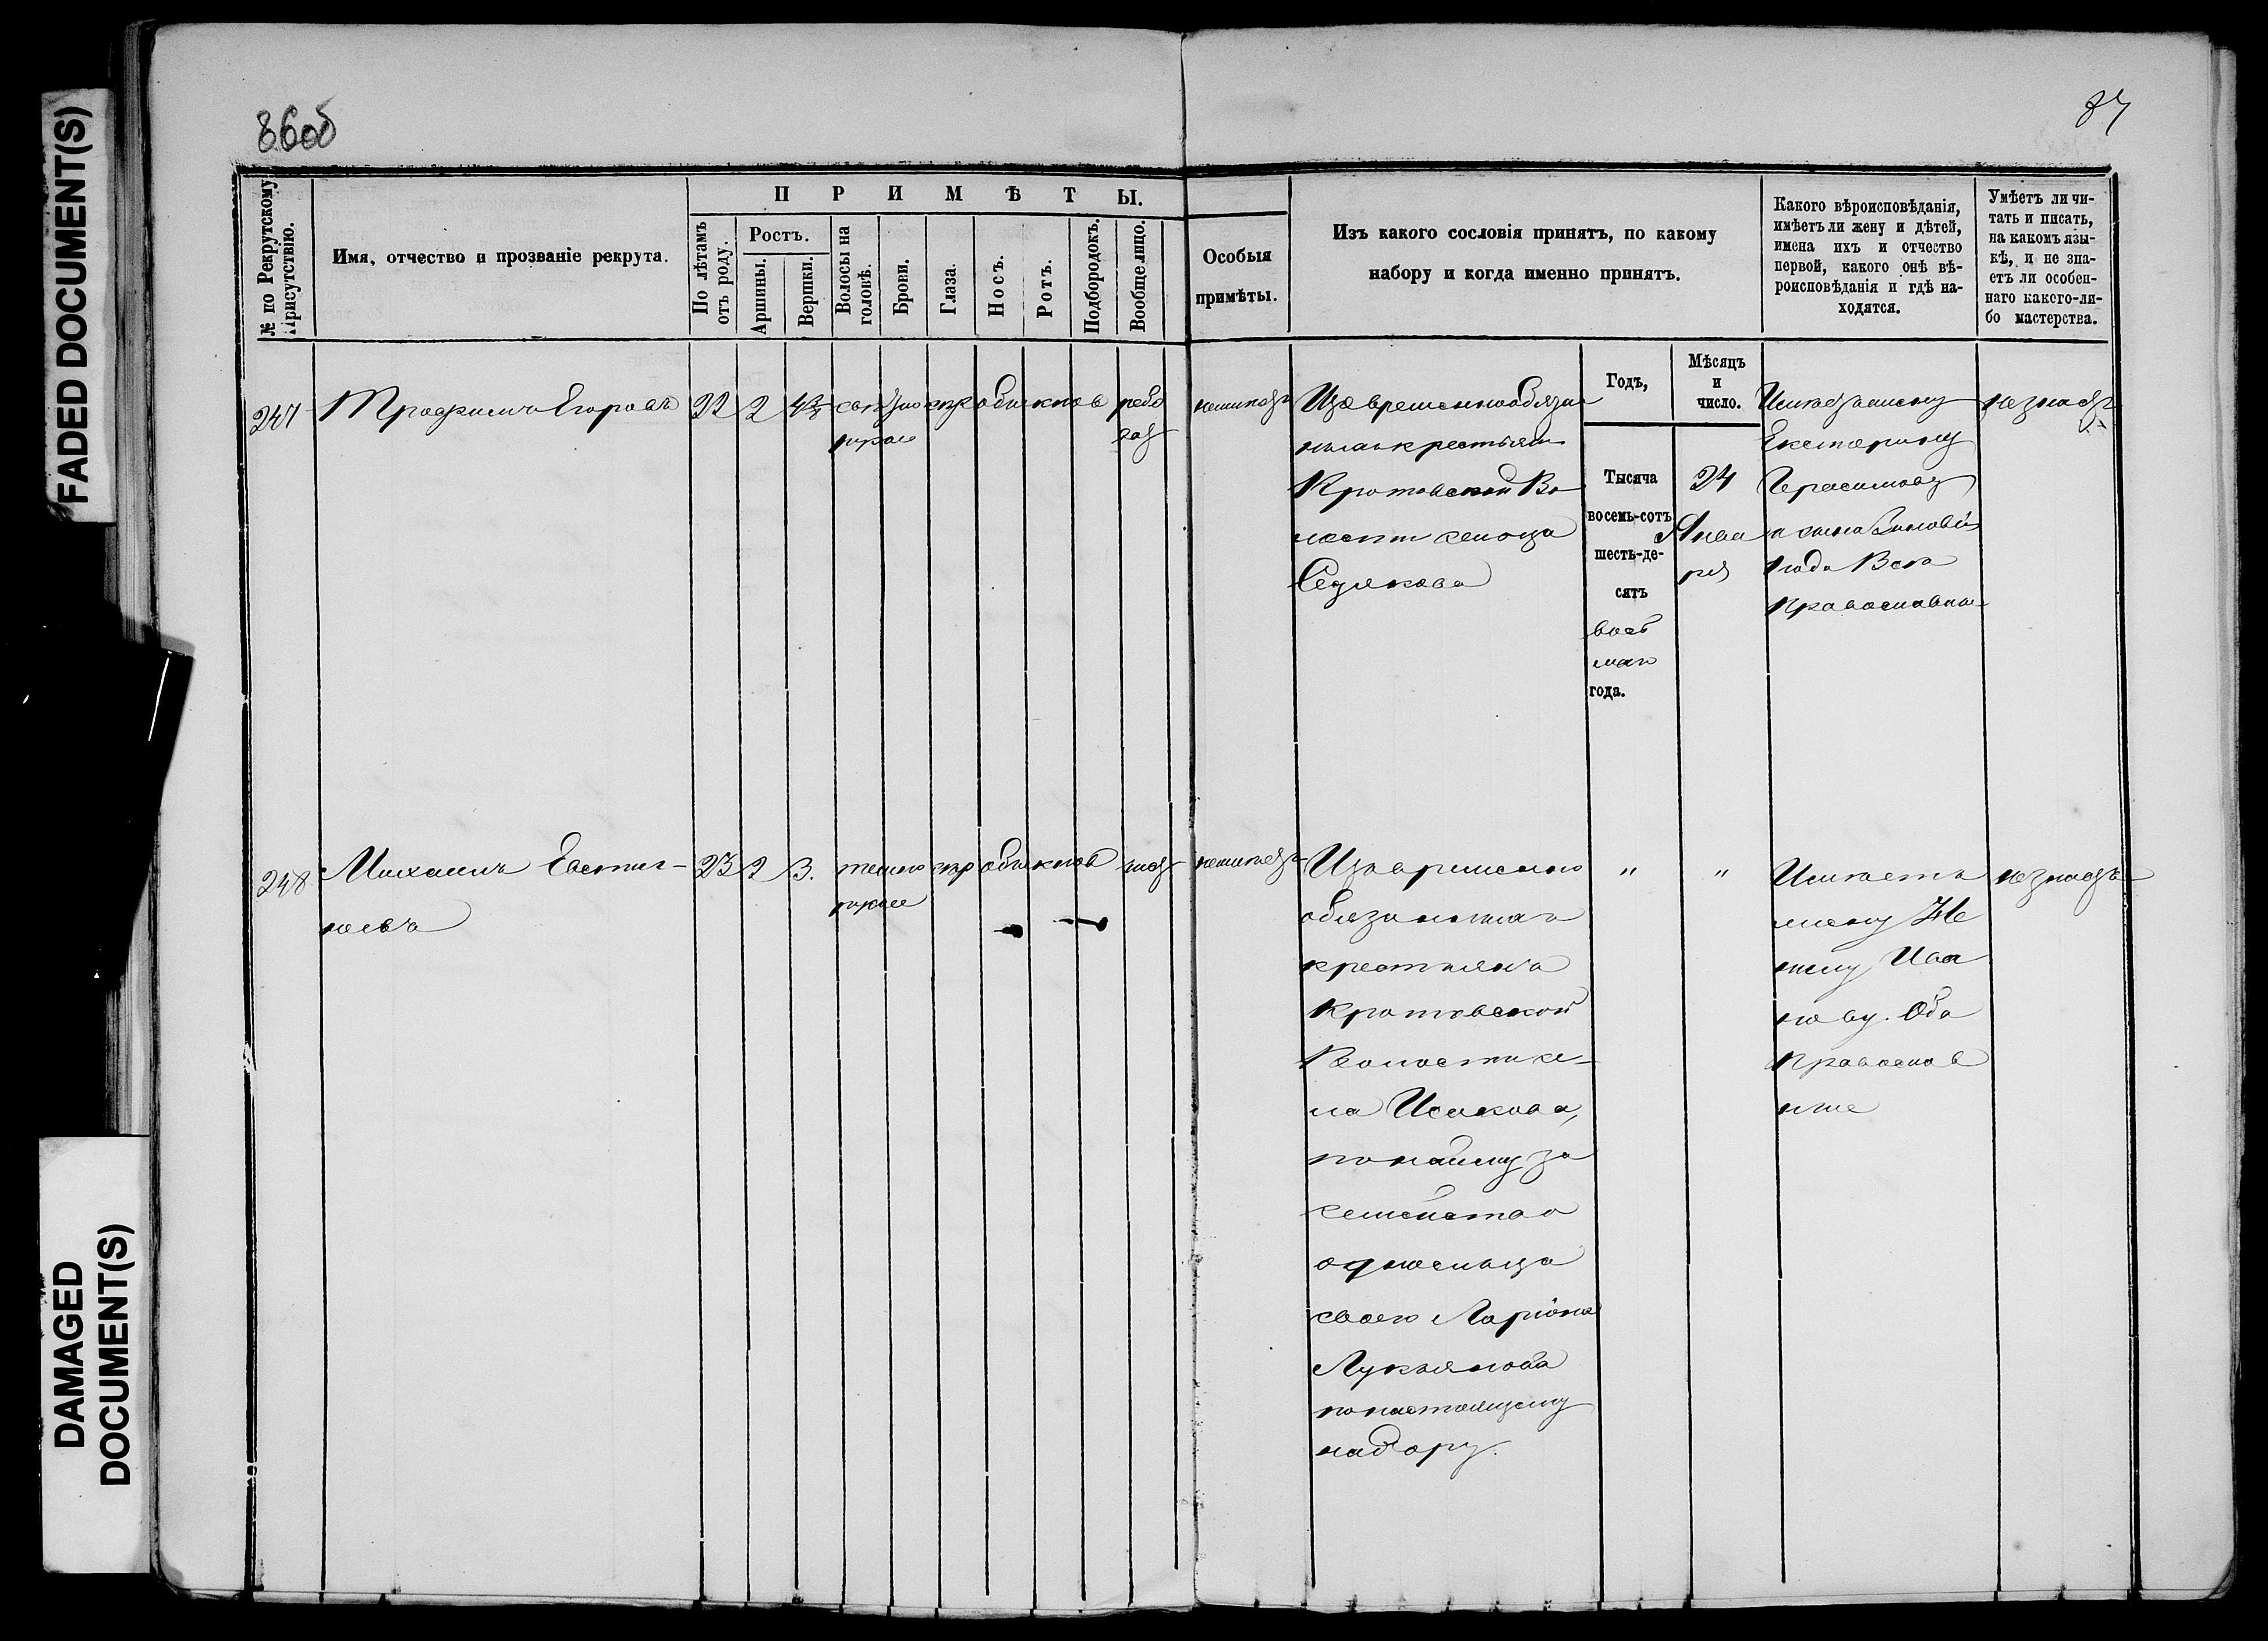 FADED DOCUMENT(S)
DAMAGED
DOCUMENT(S)
86об
87
№ по Рекрутскому
Присутствію.
Имя, отчество и прозваніе рекрута.
ПРИМѢТЫ.
По лѣтамъ
отъ роду.
Ростъ.
Аршины.
Вершки.
Волосы на
головѣ.
Брови.
Глаза.
Носъ.
Ротъ.
Подбородокъ.
Вообще лицо.
Особыя
примѣты.
Изъ какого сословія принятъ, по какому
набору и когда именно принятъ.
Какого вѣроисповѣданія,
имѣетъ ли жену и дѣтей,
имена ихъ и отчество
первой, какого онѣ вѣ-
роисповѣданія и гдѣ на-
ходятся.
Умѣетъ ли чи-
тать и писать,
на какомъ язы-
кѣ, и не зна-
етъ ли особен-
наго какого-ли-
бо мастерства.
Годъ,
Мѣсяцъ
и
число.
247
Трофимъ Егоровъ
22
2
обыкнов
рябо
Изъ временнообяза
крестьян
Кротовской Во
лости сельца
Седякова
Тысяча
восемь-сотъ
шесть-де-
сятъ
вось
маго
года.
24
Янва
ря
Имѣетъ жену
Екатерину
Герасимову
и сына Зиновiя
1 года Всѣ
православн
не знаетъ
248
Михаилъ Евстиг-
неевъ
23
2
3.
темно
русые
сѣр
обыкнов
чис
неимѣетъ
Изъ временно
обязанныхъ
крестьянъ
Кротовской
Волости се-
ла Исакова,
по найму за
семейство
односельца
своего Ларiона
Лукьянова
по настоящему
набору.
"
"
Имѣетъ
жену
Ива
нову. Оба
православ
ные
не знаетъ